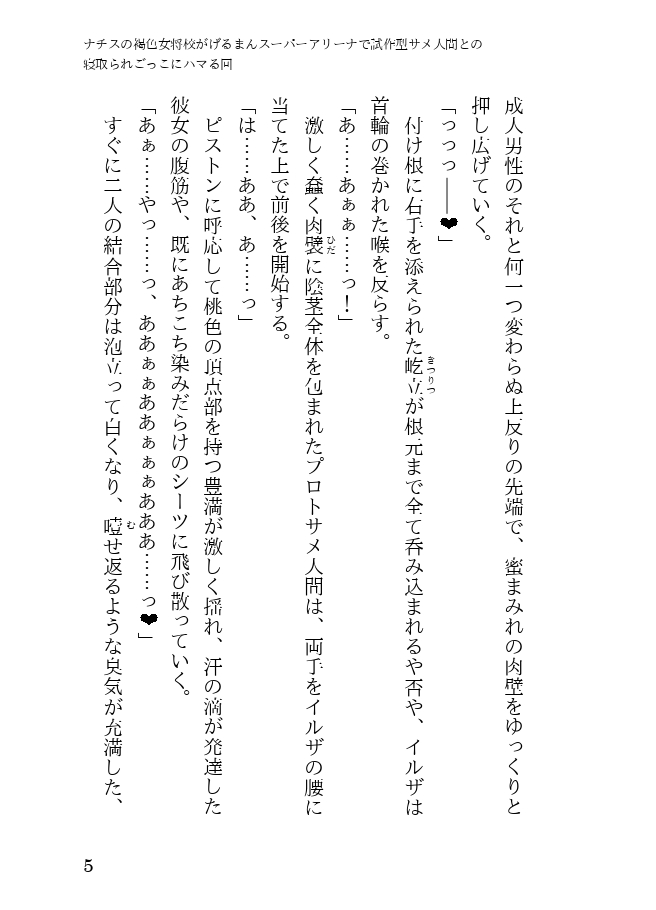 ナチスの褐色女将校がげるまんスーパーアリーナで試作型サメ人間との
寝取られごっこにハマる回
成人男性のそれと何一つ変わらぬ上反りの先端で、蜜まみれの肉壁をゆっくりと
押し広げていく。
「っっっ――❤」
付け根に右手を添えられた屹立が根元まで全て呑み込まれるや否や、イルザは
きつりつ
首輪の巻かれた喉を反らす。
「あ……あぁぁ……っ！」
激しく蠢く肉襞に陰茎全体を包まれたプロトサメ人間は、両手をイルザの腰に
ひだ
当てた上で前後を開始する。
「は……ああ、あ……っ」
ピストンに呼応して桃色の頂点部を持つ豊満が激しく揺れ、汗の滴が発達した
彼女の腹筋や、既にあちこち染みだらけのシーツに飛び散っていく。
「あぁ……やっ……っ、ああぁぁああぁぁぁあああ……っ❤」
すぐに二人の結合部分は泡立って白くなり、噎せ返るような臭気が充満した、
む
5